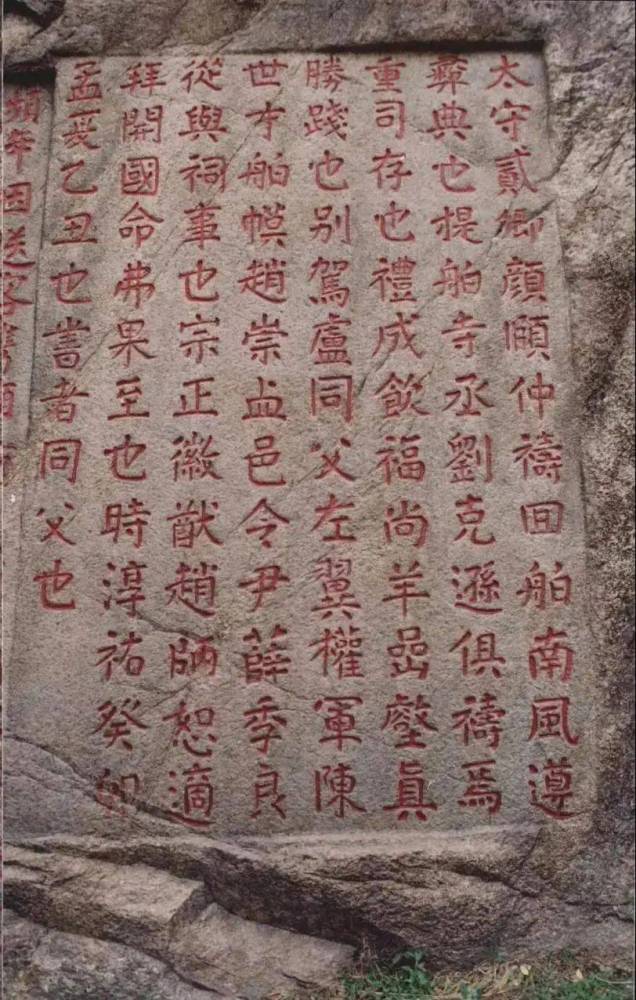 太守貳卿顏頤仲禱囬舶南風遵
彝典也提舶寺丞劉克遜俱禱焉
重司存也禮成飲福尚羊嵒壑眞
勝踐也別駕盧同父左翼權軍陳
世才舶幙趙崇邑令尹薛季良
從與祠事也宗正徽猷趙師恕適
拜開國命弗果至也時淳祐癸卯
孟夏乙丑也書者同父也
年因送客